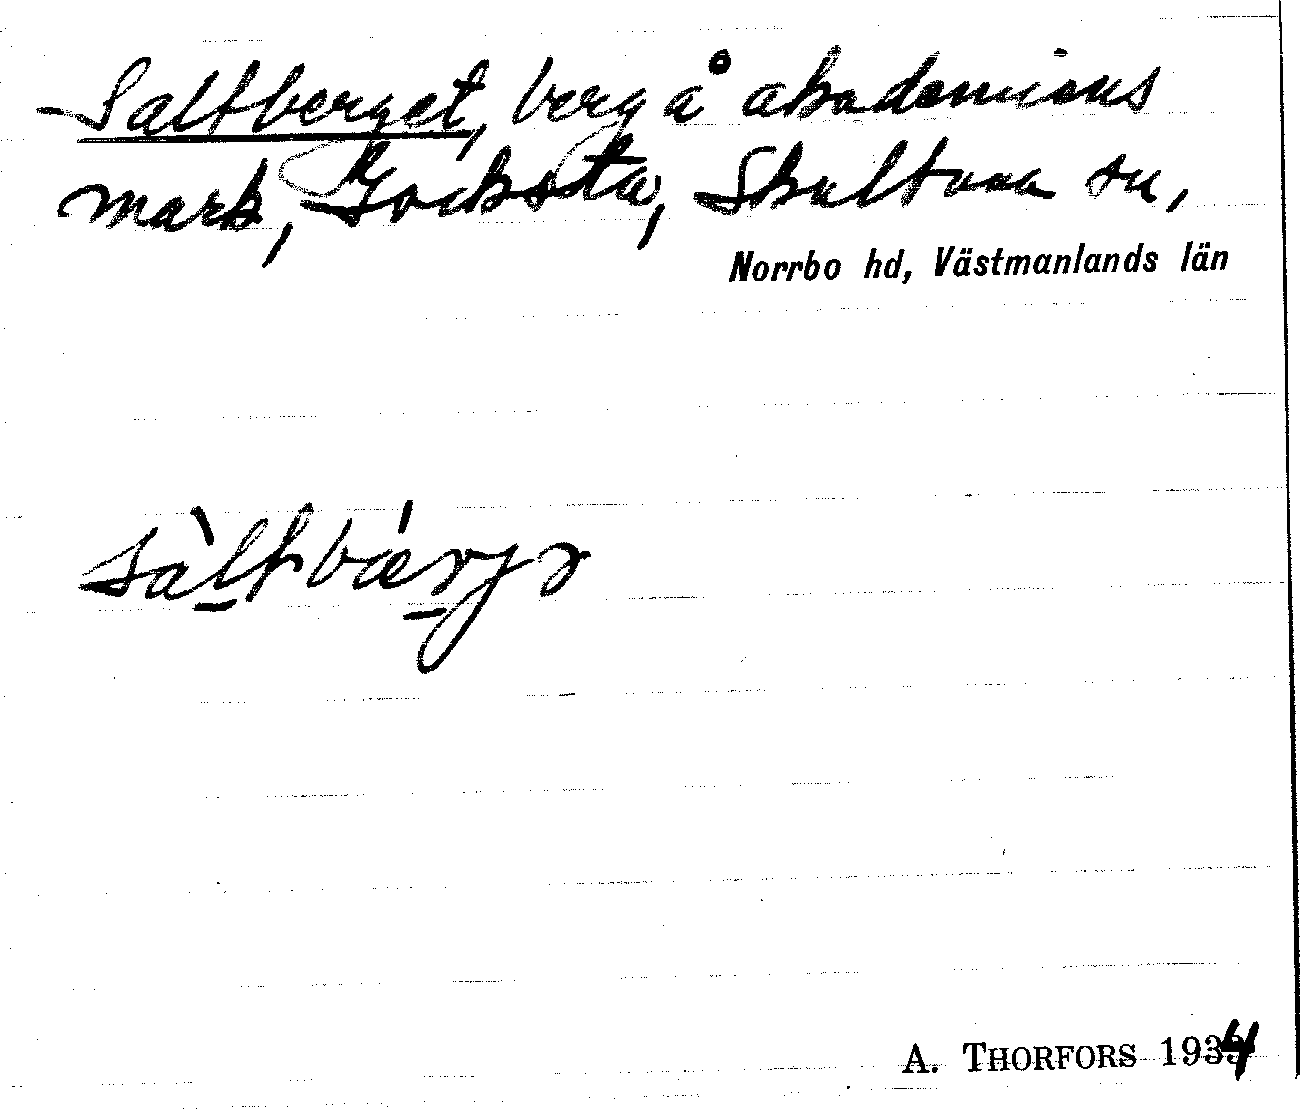 Saltberget, berg å akademiens
mark, Gocksta, Skultuna sn,
Norrbo hd, Västmanlands län
sàltbárjə
A. THORFORS 1934